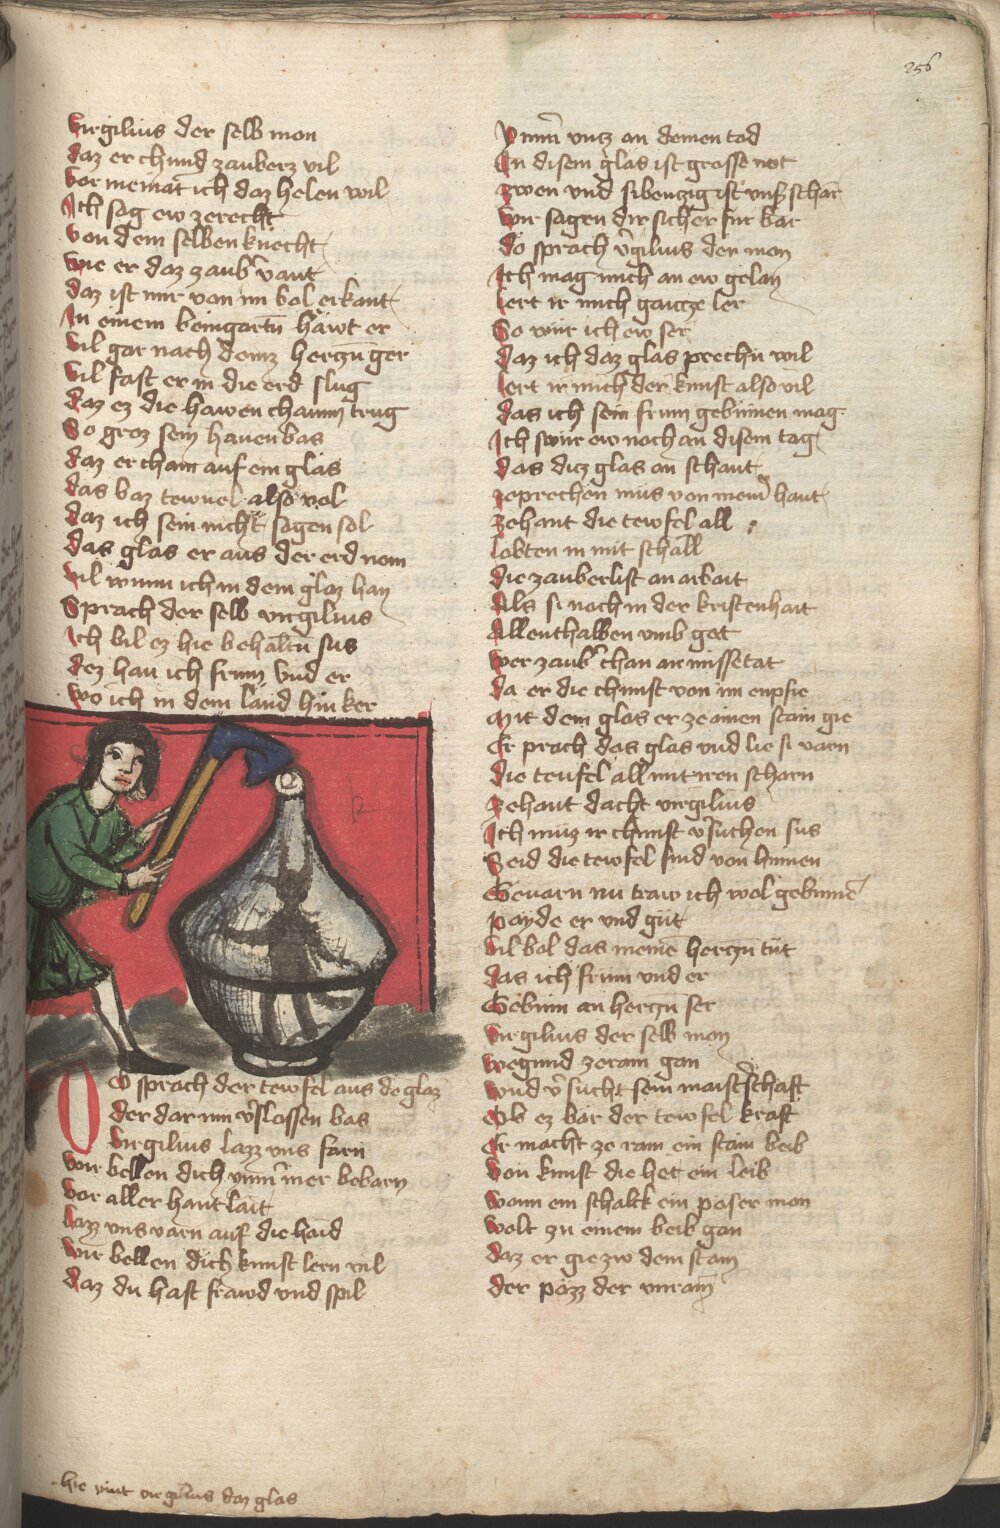 256
Virgilius der selb mon
daz er chund zauberz vil
vor meniat ich daz helen wil
Ich sag ew zerecht
von dem selben knecht
wie er daz zaub' vant
daz ist mir von im bol erkant
In einem beingartn̄ hawt er
vil gar nach deinz herczn̄ ger
vil fast er in die erd slug
daz ez die hawen chaum trug
So groz sein hauen bas
daz er cham auf ein glas
das baz tewuel also vol
daz ich sein nicht sagen sol
das glas er aus der erd nom
vil wunn ich in dem glaz han
Sprach der selb virgilius
Ich bil ez hie behaltn̄ sus
dez han ich frum vnd er
wo ich in dem land hin ker
Do sprach der tewfel aus de glaz
der dar inn v'slossen bas
virgilius lazz uns farn
wir bellen dich ymm̄ mer bebarn
vor aller hant lait
lazz vns varn auf die haid
wir bellen dich kunst lern vil
daz du hast frawd vnd spil
hie vint virgilius daz glas
ymm̄ vntz an deinen tod
In disem glas ist grosse not
zwen vnd sibenzig ist vns' schar
wir sagen dir sicher fur bar
do sprach v'gilius der mon
Ich mag mich an ew gelan
lert ir mich gancze ler
So wur ich ew ser
daz ich daz glas prechn̄ wil
lert ir mich der kunst also vil
das ich sein frum gebinnen mag
Ich swur ew noch an disem tag
das dicz glas an schant
zeprechen mus von mein' hant
zehant die tewfel all
lobten in mit schall
die zauberlist an arbait
Als si noch in der kristenhait
Allenthalben vmb get
wer zaub' chan an missetat
da er die chunst von im enpfie
mit dem glas er ze ainen stain gie
Er prach das glas vnd lie si varn
die teufel all mit iren scharn
zehant dacht virgilius
Ich muz ir chunst v'suchen sus
Seid die tewfel sind von hinnen
Gevarn nu traw ich wol gebinne
payde er vnd gut
vil bol das meine herczn̄ tut
das ich frum vnd er
Gebinn an herczn̄ ser
virgilius der selb mon
wegund zeram gan
vnd v'sucht sein maist'schaft
Ob ez bar der tewfel kraft
Er macht ze ram ein stain beib
von kunst die het ein leib
wann ein schalck ein poser mon
wolt zu einem beib gan
daz er gie zw dem stain
der pozz der vnrain